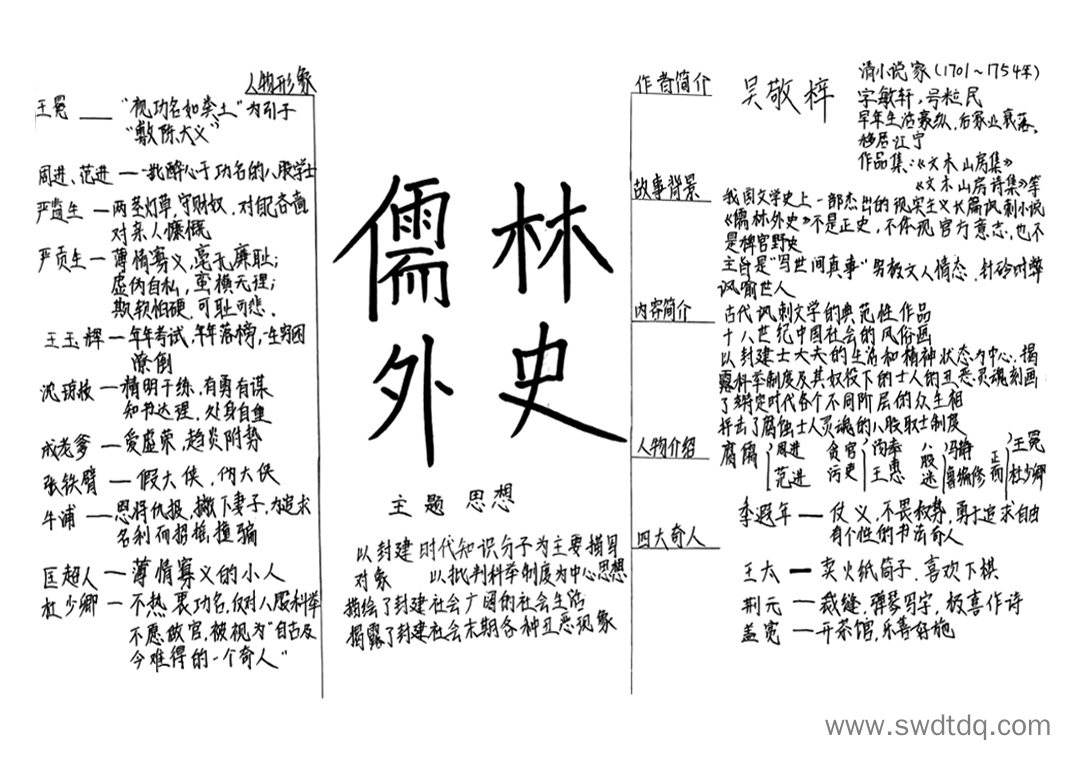 人物形象
王冕 — "视功名如粪土"为引子
"敷陈大义"
周进、范进 — 一批醉心于功名的八股学士
严监生 — 两茎灯草,守财奴,对自己吝啬
对亲人慷慨
严贡生 — 薄情寡义,毫无廉耻;
虚伪自私,蛮横无理;
欺软怕硬,可耻可悲.
王玉辉 — 年年考试,年年落榜,一生穷困
潦倒
沈琼枝 — 精明干练,有勇有谋
知书达理,处身自重
成老爹 — 爱虚荣,趋炎附势
张铁臂 — 假大侠,伪大侠
牛浦 — 恩将仇报,撇下妻子,为追求
名利而招摇,撞骗
匡超人 — 薄情寡义的小人
杜少卿 — 不热衷功名,反对八股科举
不愿做官,被视为"自古及
今难得的一个奇人"
儒林
外史
主题思想
以封建时代知识分子为主要描写
对象 以批判科举制度为中心思想
描绘了封建社会广阔的社会生活
揭露了封建社会末期各种丑恶现象
作者简介
吴敬梓
清小说家(1701~1754年)
字敏轩,号粒民
早年生活豪纵,后家业衰落,
移居江宁
作品集:《文木山房集》
《文木山房诗集》等
故事背景
我国文学史上一部杰出的现实主义长篇讽刺小说
《儒林外史》不是正史,不体现官方意志,也不
是稗官野史
主旨是"写世间真事"穷极文人情态,针砭时弊
讽喻世人
内容简介
古代讽刺文学的典范性作品
十八世纪中国社会的风俗画
以封建士大夫的生活和精神状态为中心,揭
露科举制度及其奴役下的士人的丑恶灵魂刻画
了特定时代各个不同阶层的众生相
抨击了腐蚀士人灵魂的八股取士制度
人物介绍
腐儒 周进 范进 贪官污吏 汤奉 王惠 八股迷 冯静 鲁编修 正面 王冕 杜少卿
四大奇人
季遐年 — 仗义,不畏权势,勇于追求自由
有个性的书法奇人
王太 — 卖火纸筒子,喜欢下棋
荆元 — 裁缝,弹琴写字,极喜作诗
盖宽 — 开茶馆,乐善好施
www.swdtdq.com